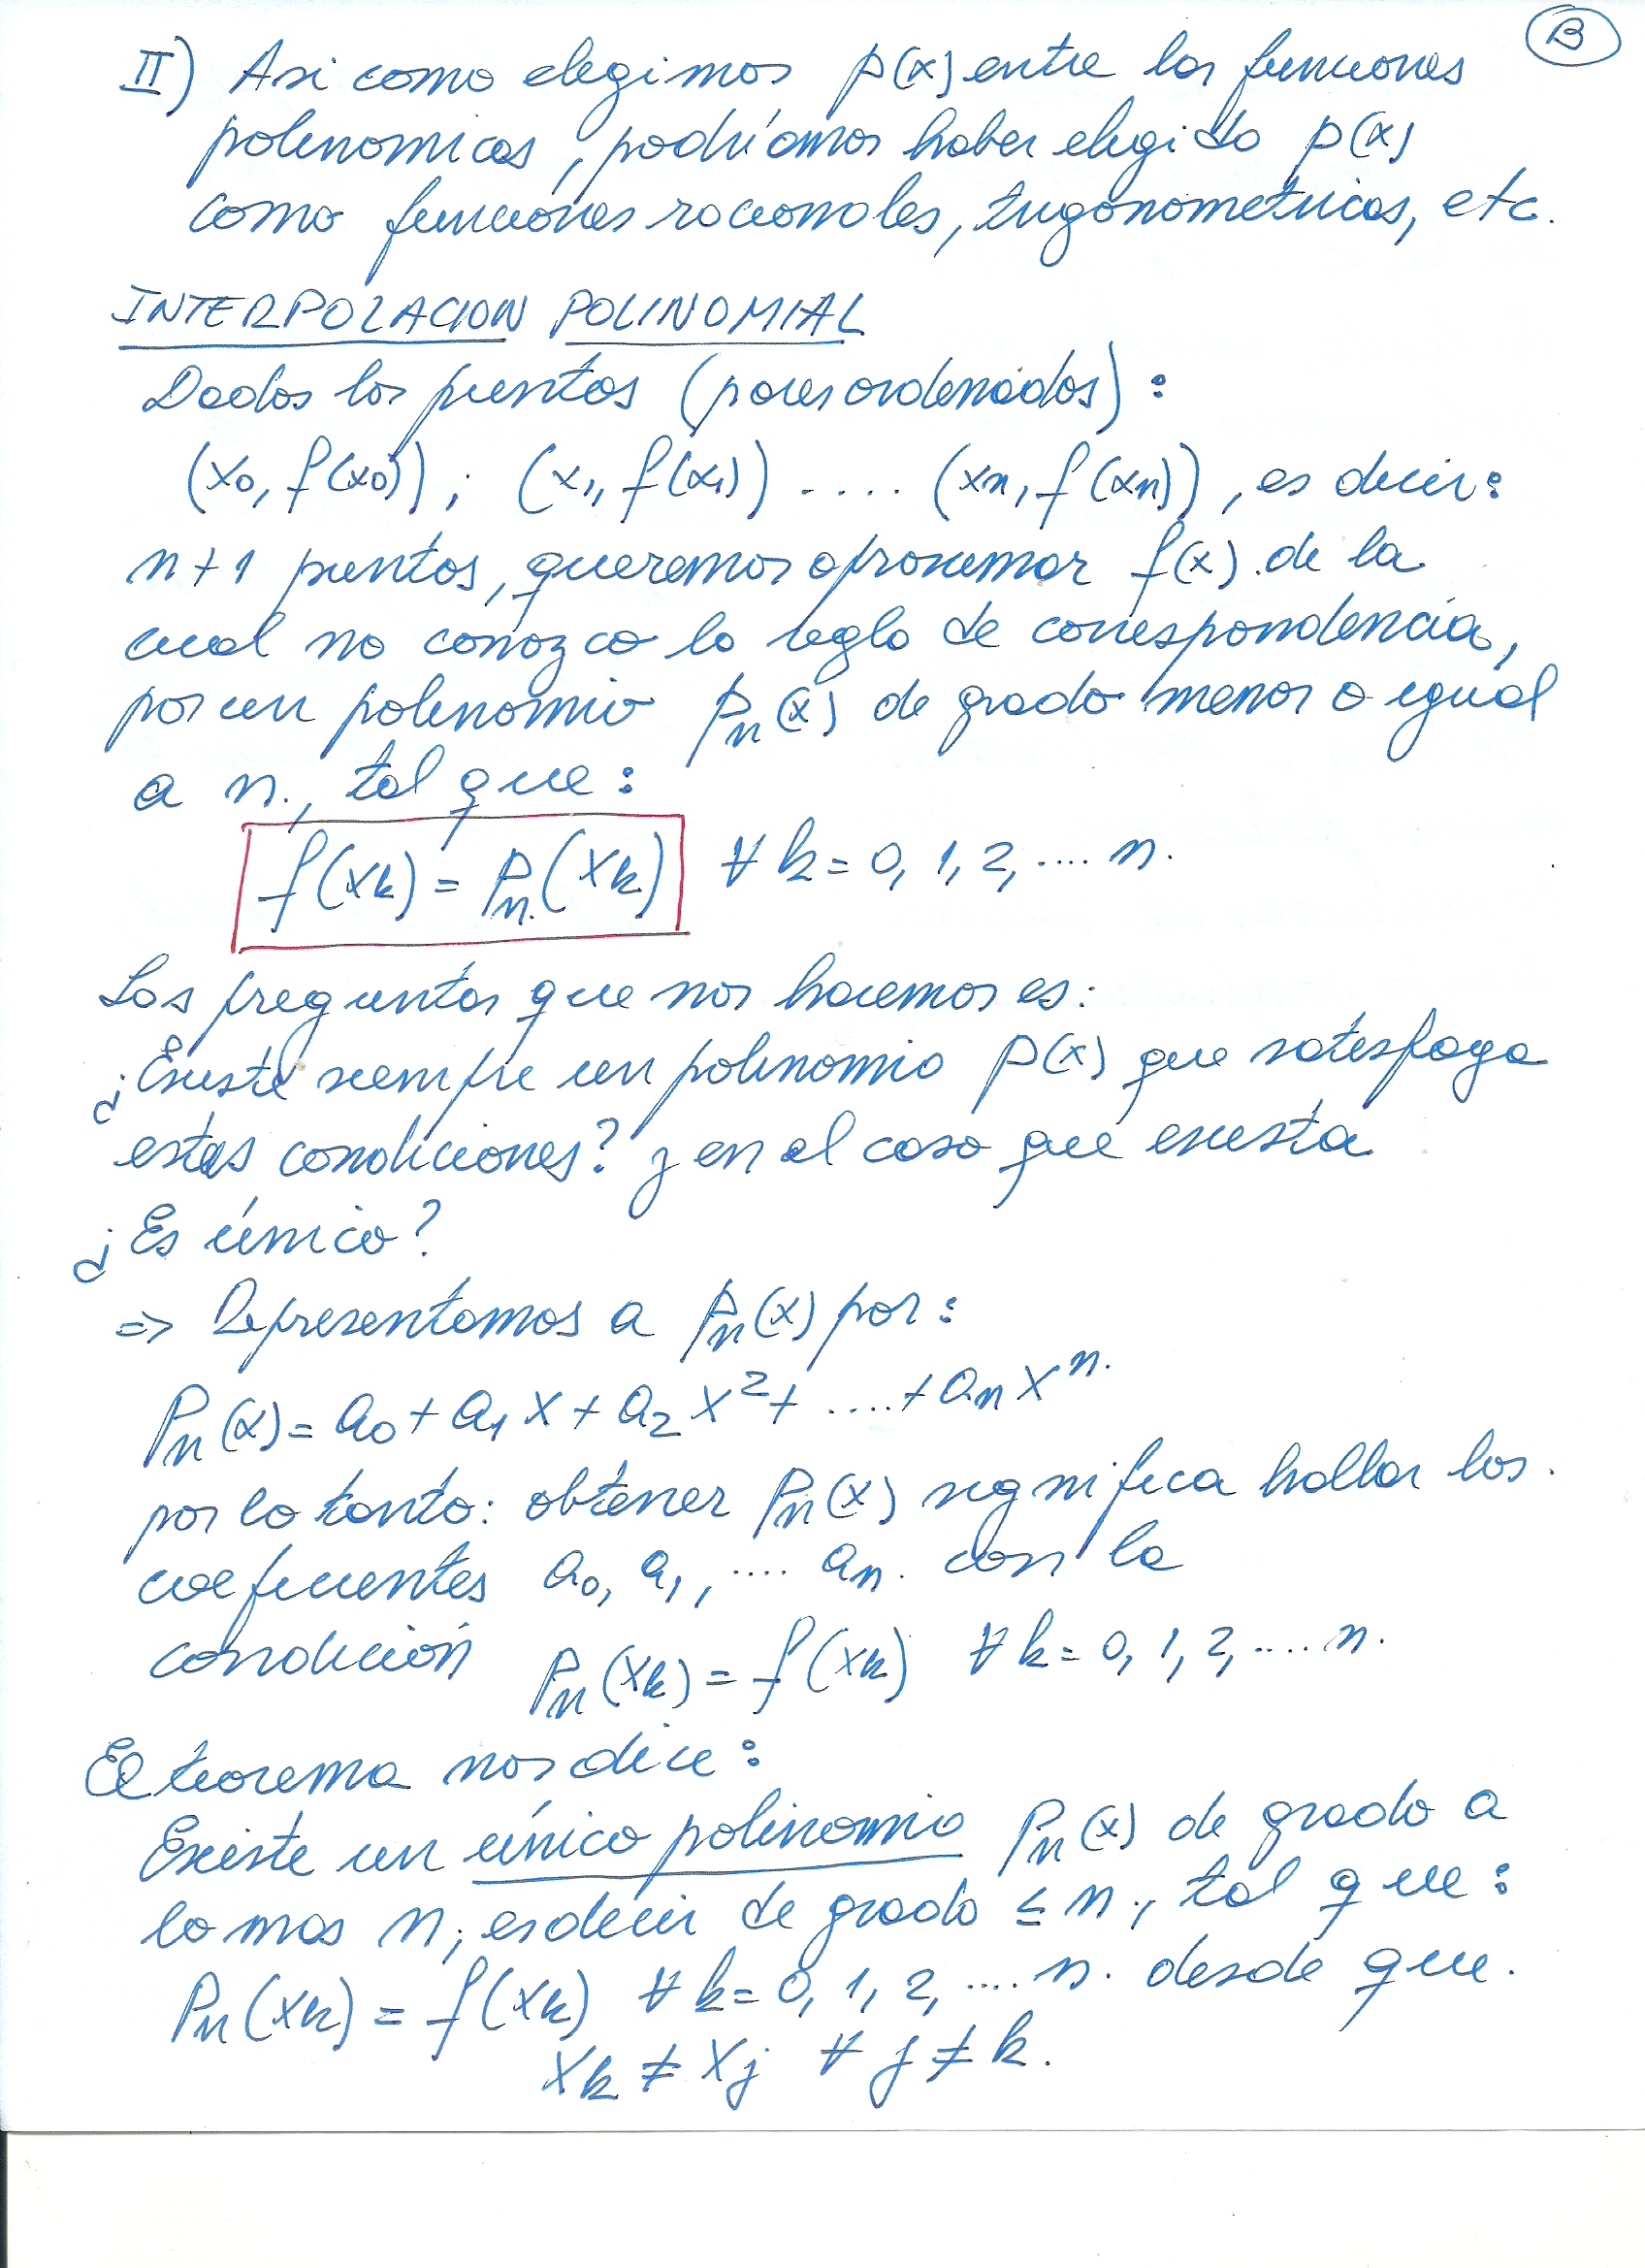 B
II) Asi como elegimos p(x) entre las funciones
polinomicas, podríamos haber elegido p(x)
como funciones racionales, trigonometricas, etc.
INTERPOLACION POLINOMIAL
Dados los puntos (pares ordenados):
(x0, f(x0)); (x1, f(x1)) .... (xn, f(xn)), es decir:
n+1 puntos, queremos aproximar f(x) de la
cual no conozco la regla de correspondencia,
por un polinomio Pn(x) de grado menor o igual
a n., tal que:
f(xk) = Pn(xk) ∀ k = 0, 1, 2, .... n.
Las preguntas que nos hacemos es:
¿Existe siempre un polinomio p(x) que satisfaga
estas condiciones? y en el caso que exista
¿Es único?
=> Representamos a Pn(x) por:
Pn(x) = a0 + a1 x + a2 x² + .... + an xⁿ.
por lo tanto: obtener Pn(x) significa hallar los
coeficientes a0, a1, .... an. con la
condición Pn(xk) = f(xk) ∀ k = 0, 1, 2, .... n.
El teorema nos dice:
Existe un único polinomio Pn(x) de grado a
lo mas n; es decir de grado ≤ n., tal que:
Pn(xk) = f(xk) ∀ k = 0, 1, 2, .... n. desde que.
xk ≠ xj ∀ j ≠ k.